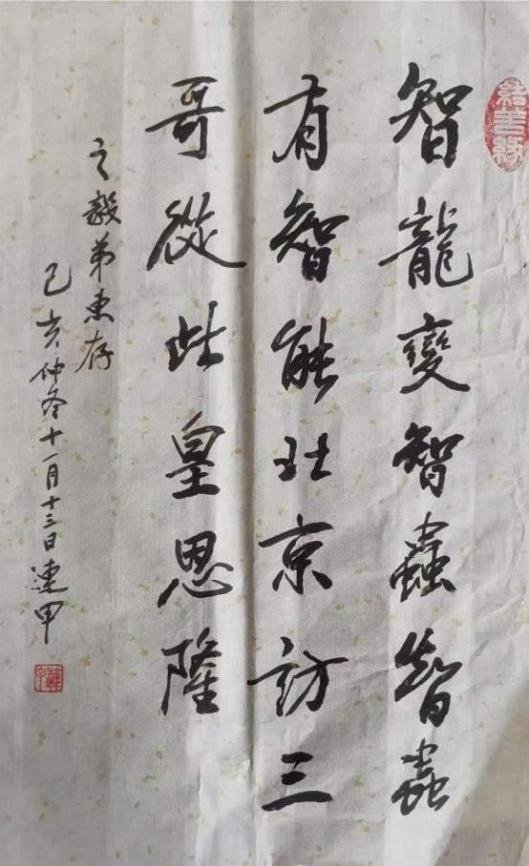 結善緣
智龍變智蟲智蟲
有智能北京訪三
哥從此皇恩隆
之毅弟惠存
己亥仲冬十一月十三日連甲